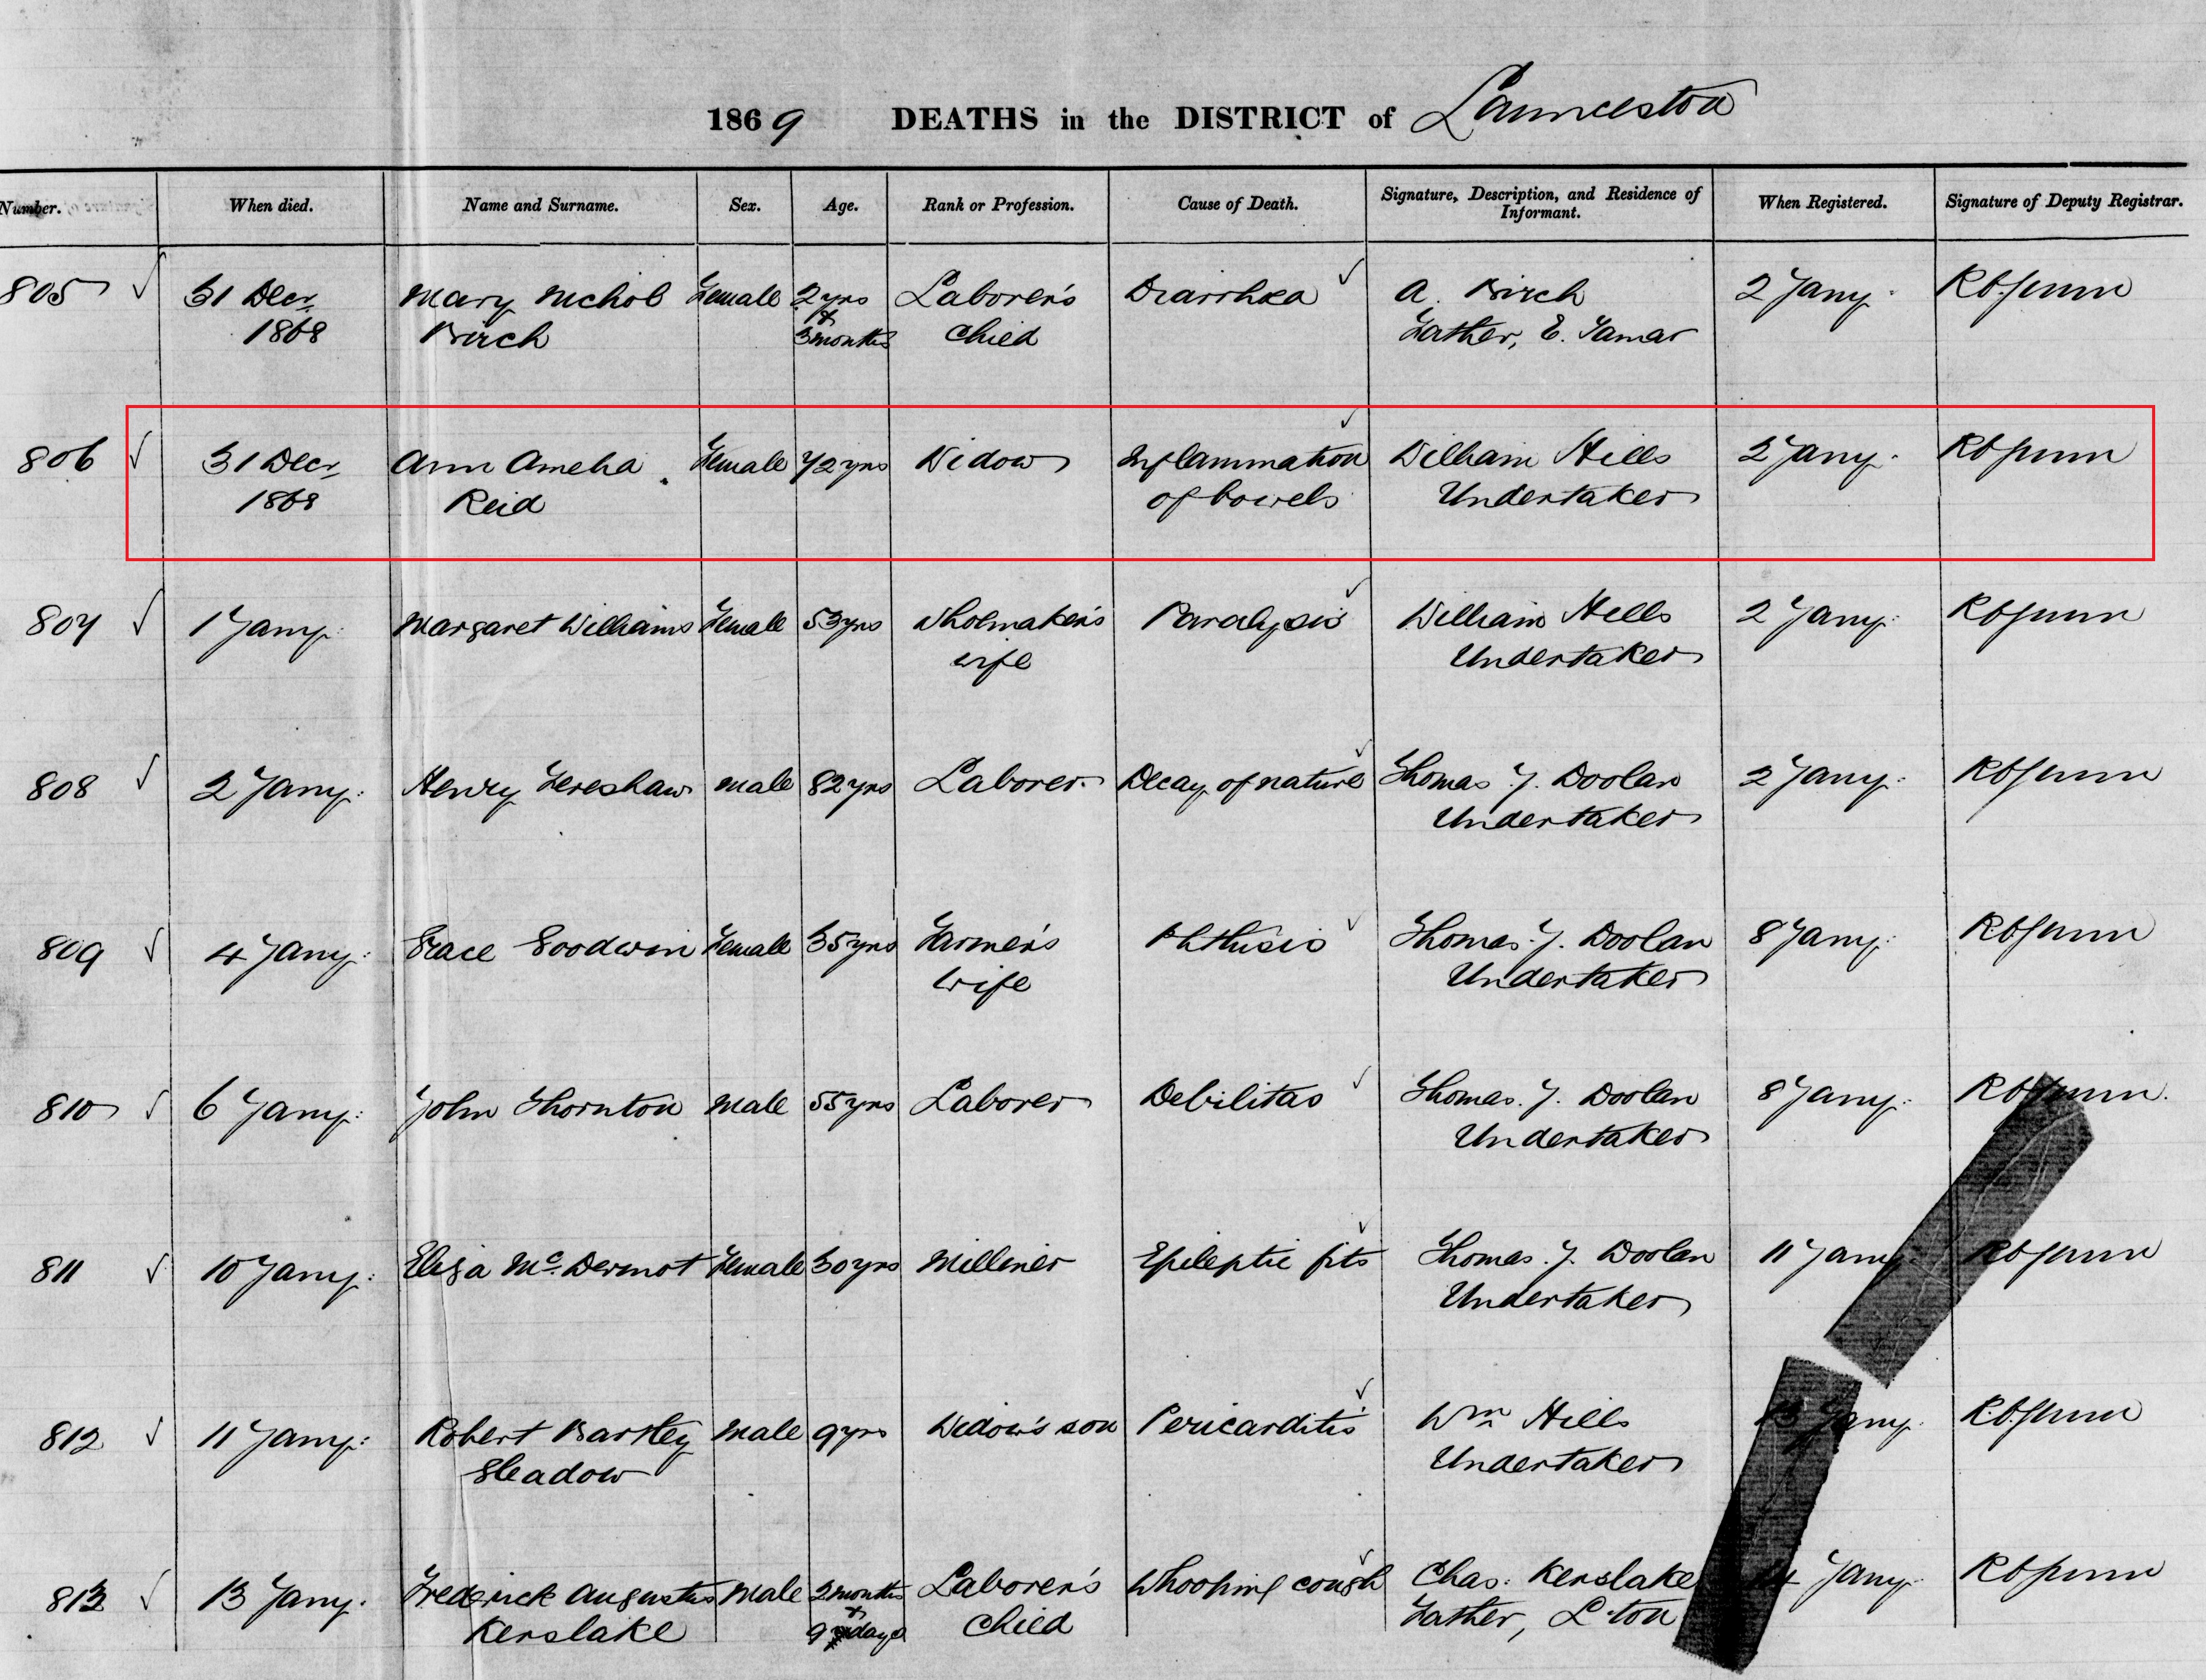 1869 DEATHS in the DISTRICT of Launceston
Number. When died. Name and Surname. Sex. Age. Rank or Profession. Cause of Death. Signature, Description, and Residence of Informant. When Registered. Signature of Deputy Registrar.
805 31 Decr Mary Nichols Female 2 yrs Laborer's Diarrhœa A. Birch 2 Jany.
1868 Birch & 3 months Child Father, E. Tamar
806 31 Decr Ann Amelia Female 72 yrs Widow Inflammation William Hills 2 Jany.
1868 Reid of bowels Undertaker
807 1 Jany. Margaret Williams Female 53 yrs Shoemaker's Paralysis William Hills 2 Jany.
wife Undertaker
808 2 Jany. Henry Fereshaw Male 82 yrs Laborer Decay of nature Thomas J. Doolan 2 Jany.
Undertaker
809 4 Jany. Grace Goodwin Female 35 yrs Farmer's Phthisis Thomas J. Doolan 8 Jany.
wife Undertaker
810 6 Jany. John Thornton Male 55 yrs Laborer Debilitas Thomas J. Doolan 8 Jany.
Undertaker
811 10 Jany. Eliza McDermot Female 30 yrs Milliner Epileptic fits Thomas J. Doolan 11 Jany.
Undertaker
812 11 Jany. Robert Bartley Male 9 yrs Widow's son Pericarditis Wm Hills 13 Jany.
Sleadow Undertaker
813 13 Jany. Frederick Augustus Male 2 months Laborer's Whooping cough Chas. Kerslake 14 Jany.
Kerslake & 9 days Child Father, L.ton